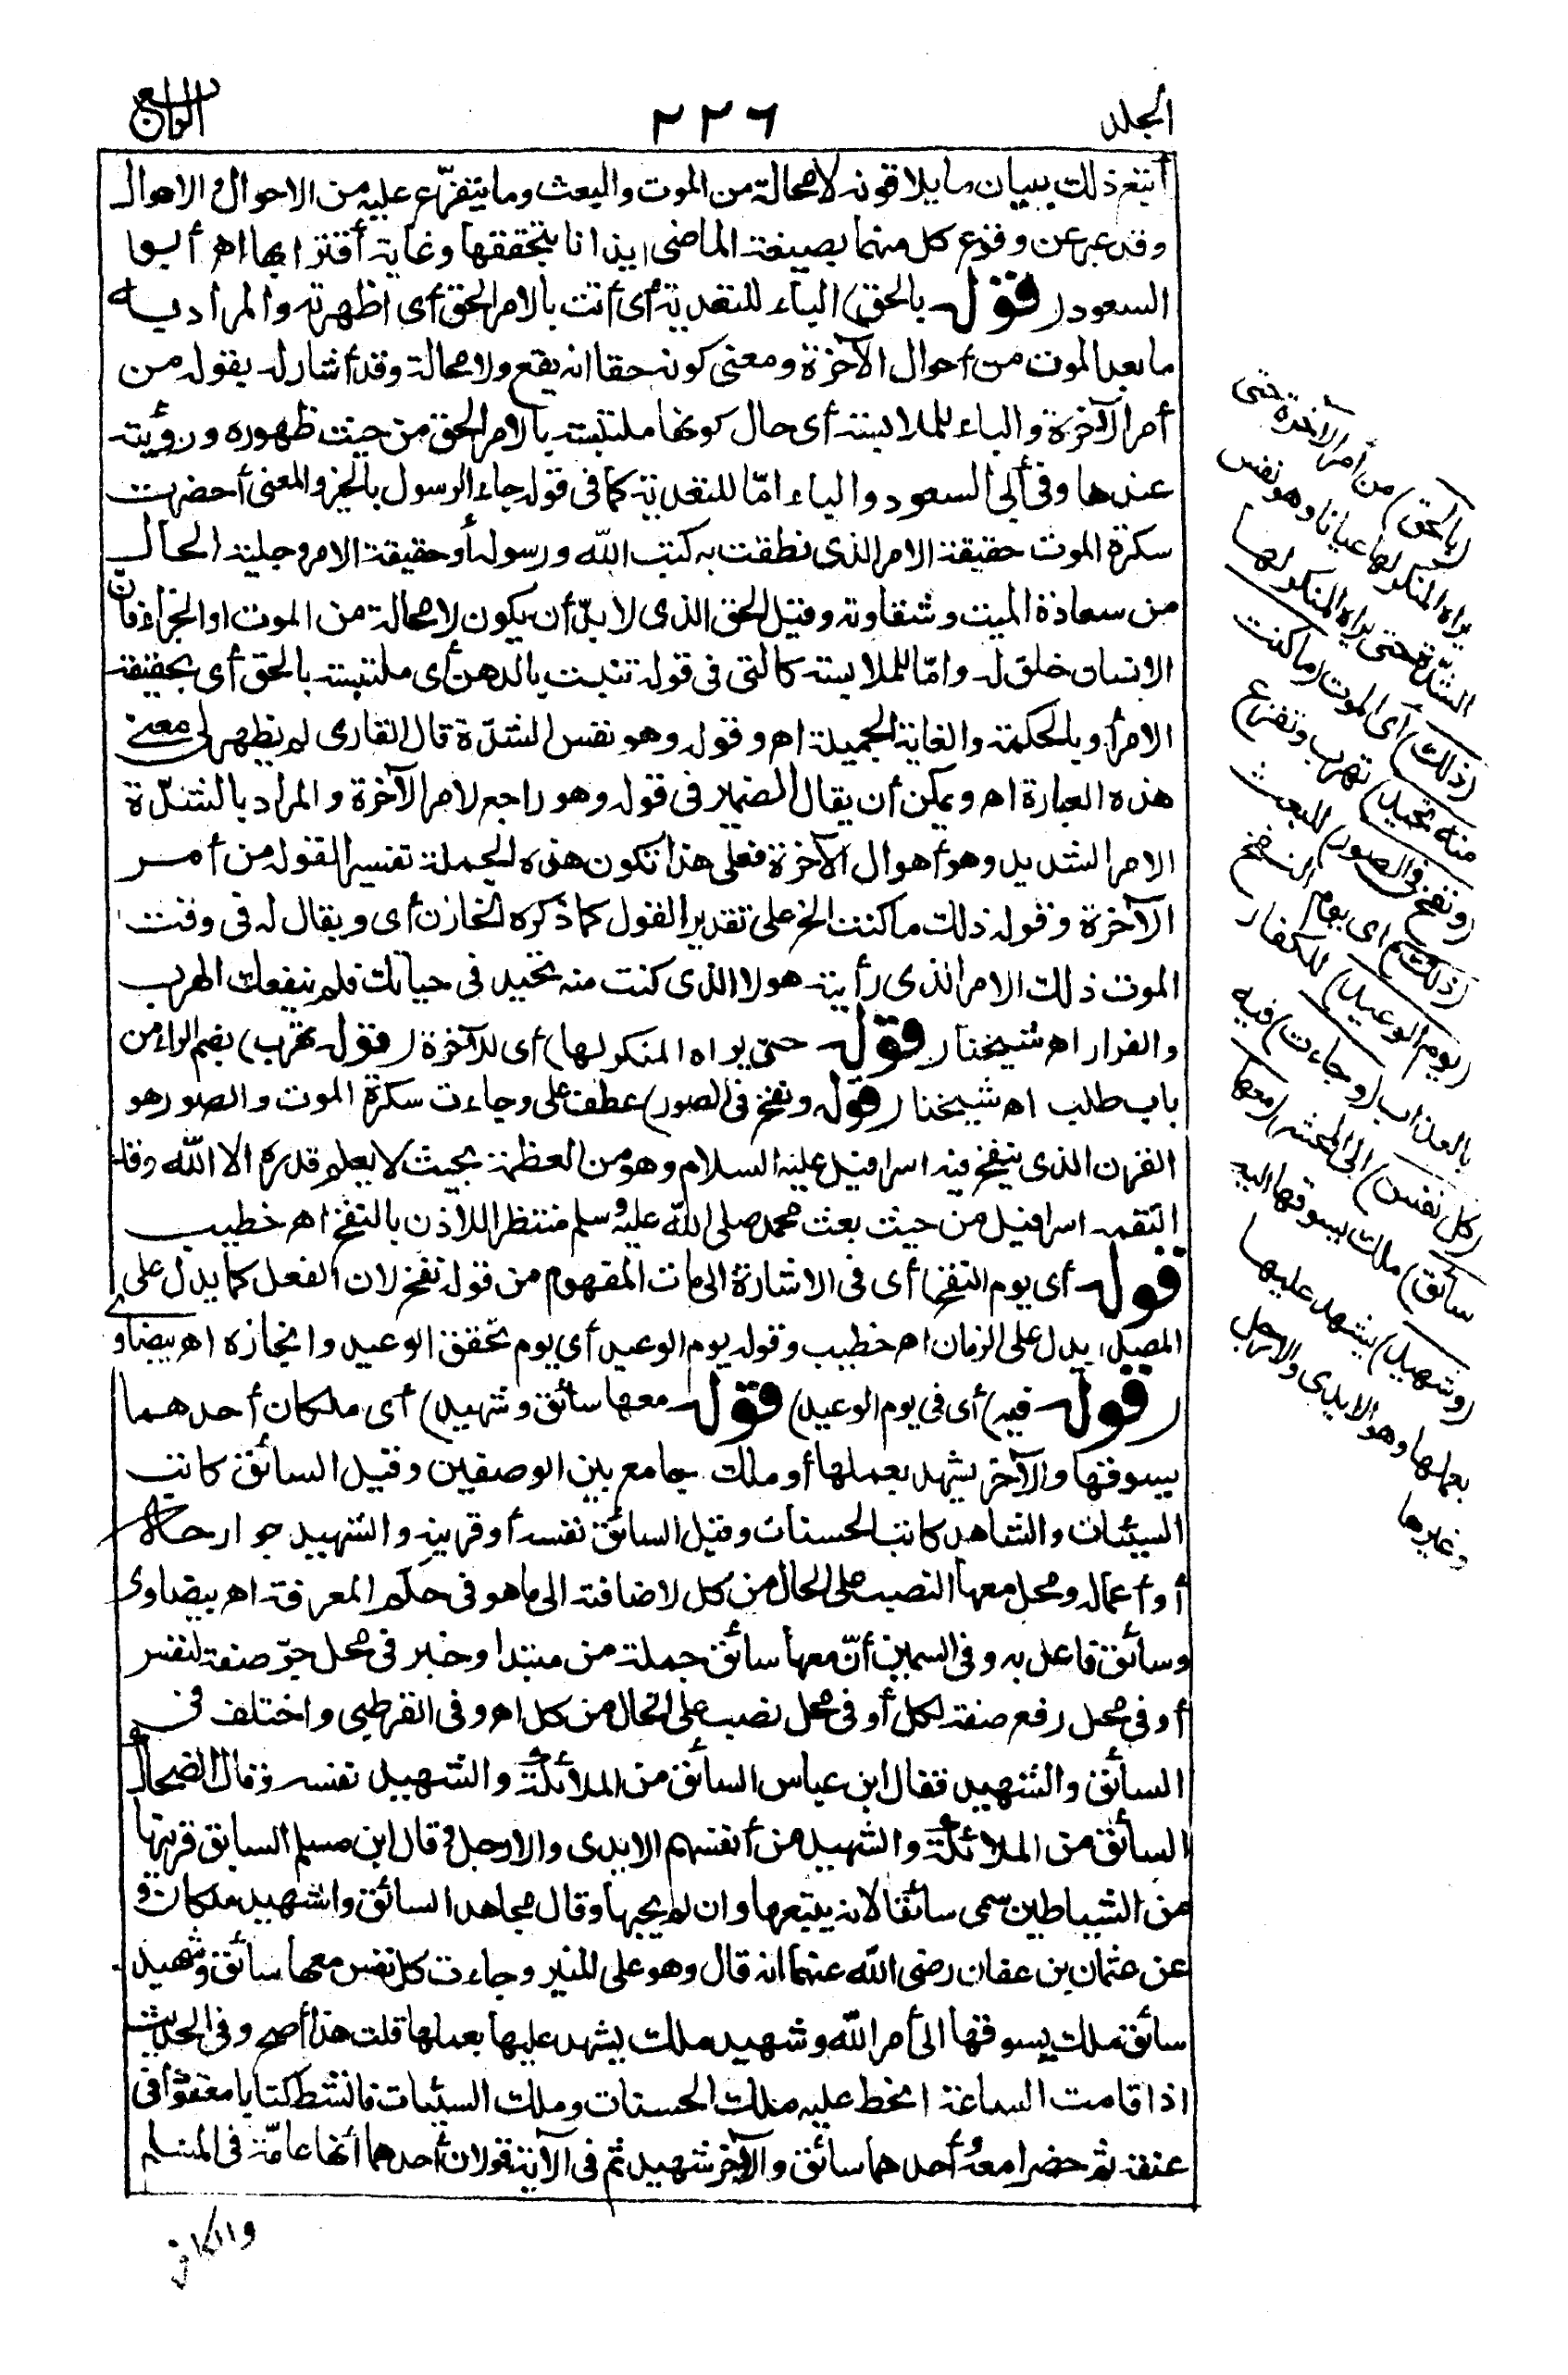 الجلد ٢٢٦ الرابع
أتبع ذلك ببيان ما يلاقونه لا محالة من الموت والبعث وما يتفرّع عليه من الاحوال والاهوال
وقد عبر عن وقوع كل منهما بصيغة الماضى ايذانا بتحققها وغاية أقترابها اه أبو
السعود (قوله بالحق) الباء للتعدية أى أتت بالامر الحق أى أظهرته والمراد به
ما بعد الموت من أحوال الآخرة ومعنى كونه حقا انه يقع ولا محالة وقد أشار له بقوله من
أمر الآخرة والباء للملابسة أى حال كونها ملتبسة بالامر الحق من حيث ظهوره ورؤيته
عندها وفى أبى السعود والباء امّا للتعدية كما فى قوله جاء الرسول بالخبر والمعنى أحضرت
سكرة الموت حقيقة الامر الذى نطقت به كتب الله ورسوله أو حقيقة الامر وجلية الحال
من سعادة الميت وشقاوته وقيل الحق الذى لا بدّ أن يكون لا محالة من الموت او الجزاء فان
الانسان خلق له وامّا للملابسة كالتى فى قوله تنبت بالدهن أى ملتبسة بالحق أى بحقيقة
الامر أو بالحكمة والغاية الجميلة اه وقوله وهو نفس الشدّة قال القارى لم يظهر لى معنى
هذه العبارة اه ويمكن أن يقال الضمير فى قوله وهو راجع لامر الآخرة والمراد بالشدّة
الامر الشديد وهو أهوال الآخرة فعلى هذا تكون هذه الجملة تفسيرا لقوله من أمر
الآخرة وقوله ذلك ما كنت الخ على تقدير القول كما ذكره الخازن أى ويقال له فى وقت
الموت ذلك الامر الذى رأيته هو لا الذى كنت منه تحيد فى حياتك فلم ينفعك الهرب
والفرار اه شيخنا (قوله حتى يراه المنكر لها) أى للآخرة (قوله تهرب) بضم الراء من
باب طلب اه شيخنا (قوله ونفخ فى الصور) عطف على وجاءت سكرة الموت والصور هو
القرن الذى ينفخ فيه اسرافيل عليه السلام وهو من العظمة بحيث لا يعلم قدره الا الله وقد
التقمه اسرافيل من حيث بعث محمد صلى الله عليه وسلم منتظرا للاذن بالنفخ اه خطيب
قوله أى يوم النفخ) أى فى الاشارة الى مان المفهوم من قوله نفخ لان الفعل كما يدل على
المصدر يدل على الزمان اه خطيب وقوله يوم الوعيد أى يوم تحقق الوعيد وانجازه اه بيضاوى
(قوله فيه) أى فى يوم الوعيد) قوله معها سائق وشهيد) أى ملكان أحدهما
يسوقها والآخر يشهد بعملها أو ملك جامع بين الوصفين وقيل السائق كاتب
السيئات والشاهد كاتب الحسنات وقيل السائق نفسه أو قرينه والشهيد جوارحه
أو أعماله ومحل معها النصب على الحال من كل لاضافته الى ما هو فى حكم المعرفة اه بيضاوى
وسائق فاعل به وفى السمين أنّ معها سائق جملة من مبتدا وخبر فى محل جرّ صفة لنفس
أو فى محل رفع صفة لكل أو فى محل نصب على الحال من كل اه وفى القرطبى واختلف فى
السائق والشهيد فقال ابن عباس السائق من الملائكة والشهيد نفسه وقال الضحاك
السائق من الملائكة والشهيد من أنفسهم الايدى والارجل وقال ابن مسلم السابق قرينها
من الشياطين سمى سائقا لانه يتبعها وان لم يحبها وقال مجاهد السائق والشهيد ملكان و
عن عثمان بن عفان رضى الله عنهما انه قال وهو على المنبر وجاءت كل نفس معها سائق وشهيد
سائق ملك يسوقها الى أمر الله وشهيد ملك يشهد عليها بعملها قلت هذا أصح وفى الحديث
اذا قامت الساعة انحط عليه ملك الحسنات وملك السيئات فانشط كتابا معقودا فى
عنقه ثم حضرا معه أحدهما سائق والآخر شهيد ثم فى الآية قولان أحدهما أنها عامّة فى المسلم
والكافر
(بالحق) من أمر الآخرة حتى
يراه المنكر لها عيانا وهو نفس
الشدّة حتى يراه المنكر لها
(ذلك) أى الموت (ما كنت
منه تحيد) تهرب وتفزع
(ونفخ فى الصور) للبعث
(ذلك) اى يوم النفخ
(يوم الوعيد) للكفار
بالعذاب (وجاءت) فيه
(كل نفس) الى المحشر (معها
سائق) ملك يسوقها اليه
(وشهيد) يشهد عليها
بعملها وهو الايدى والارجل
وغيرها